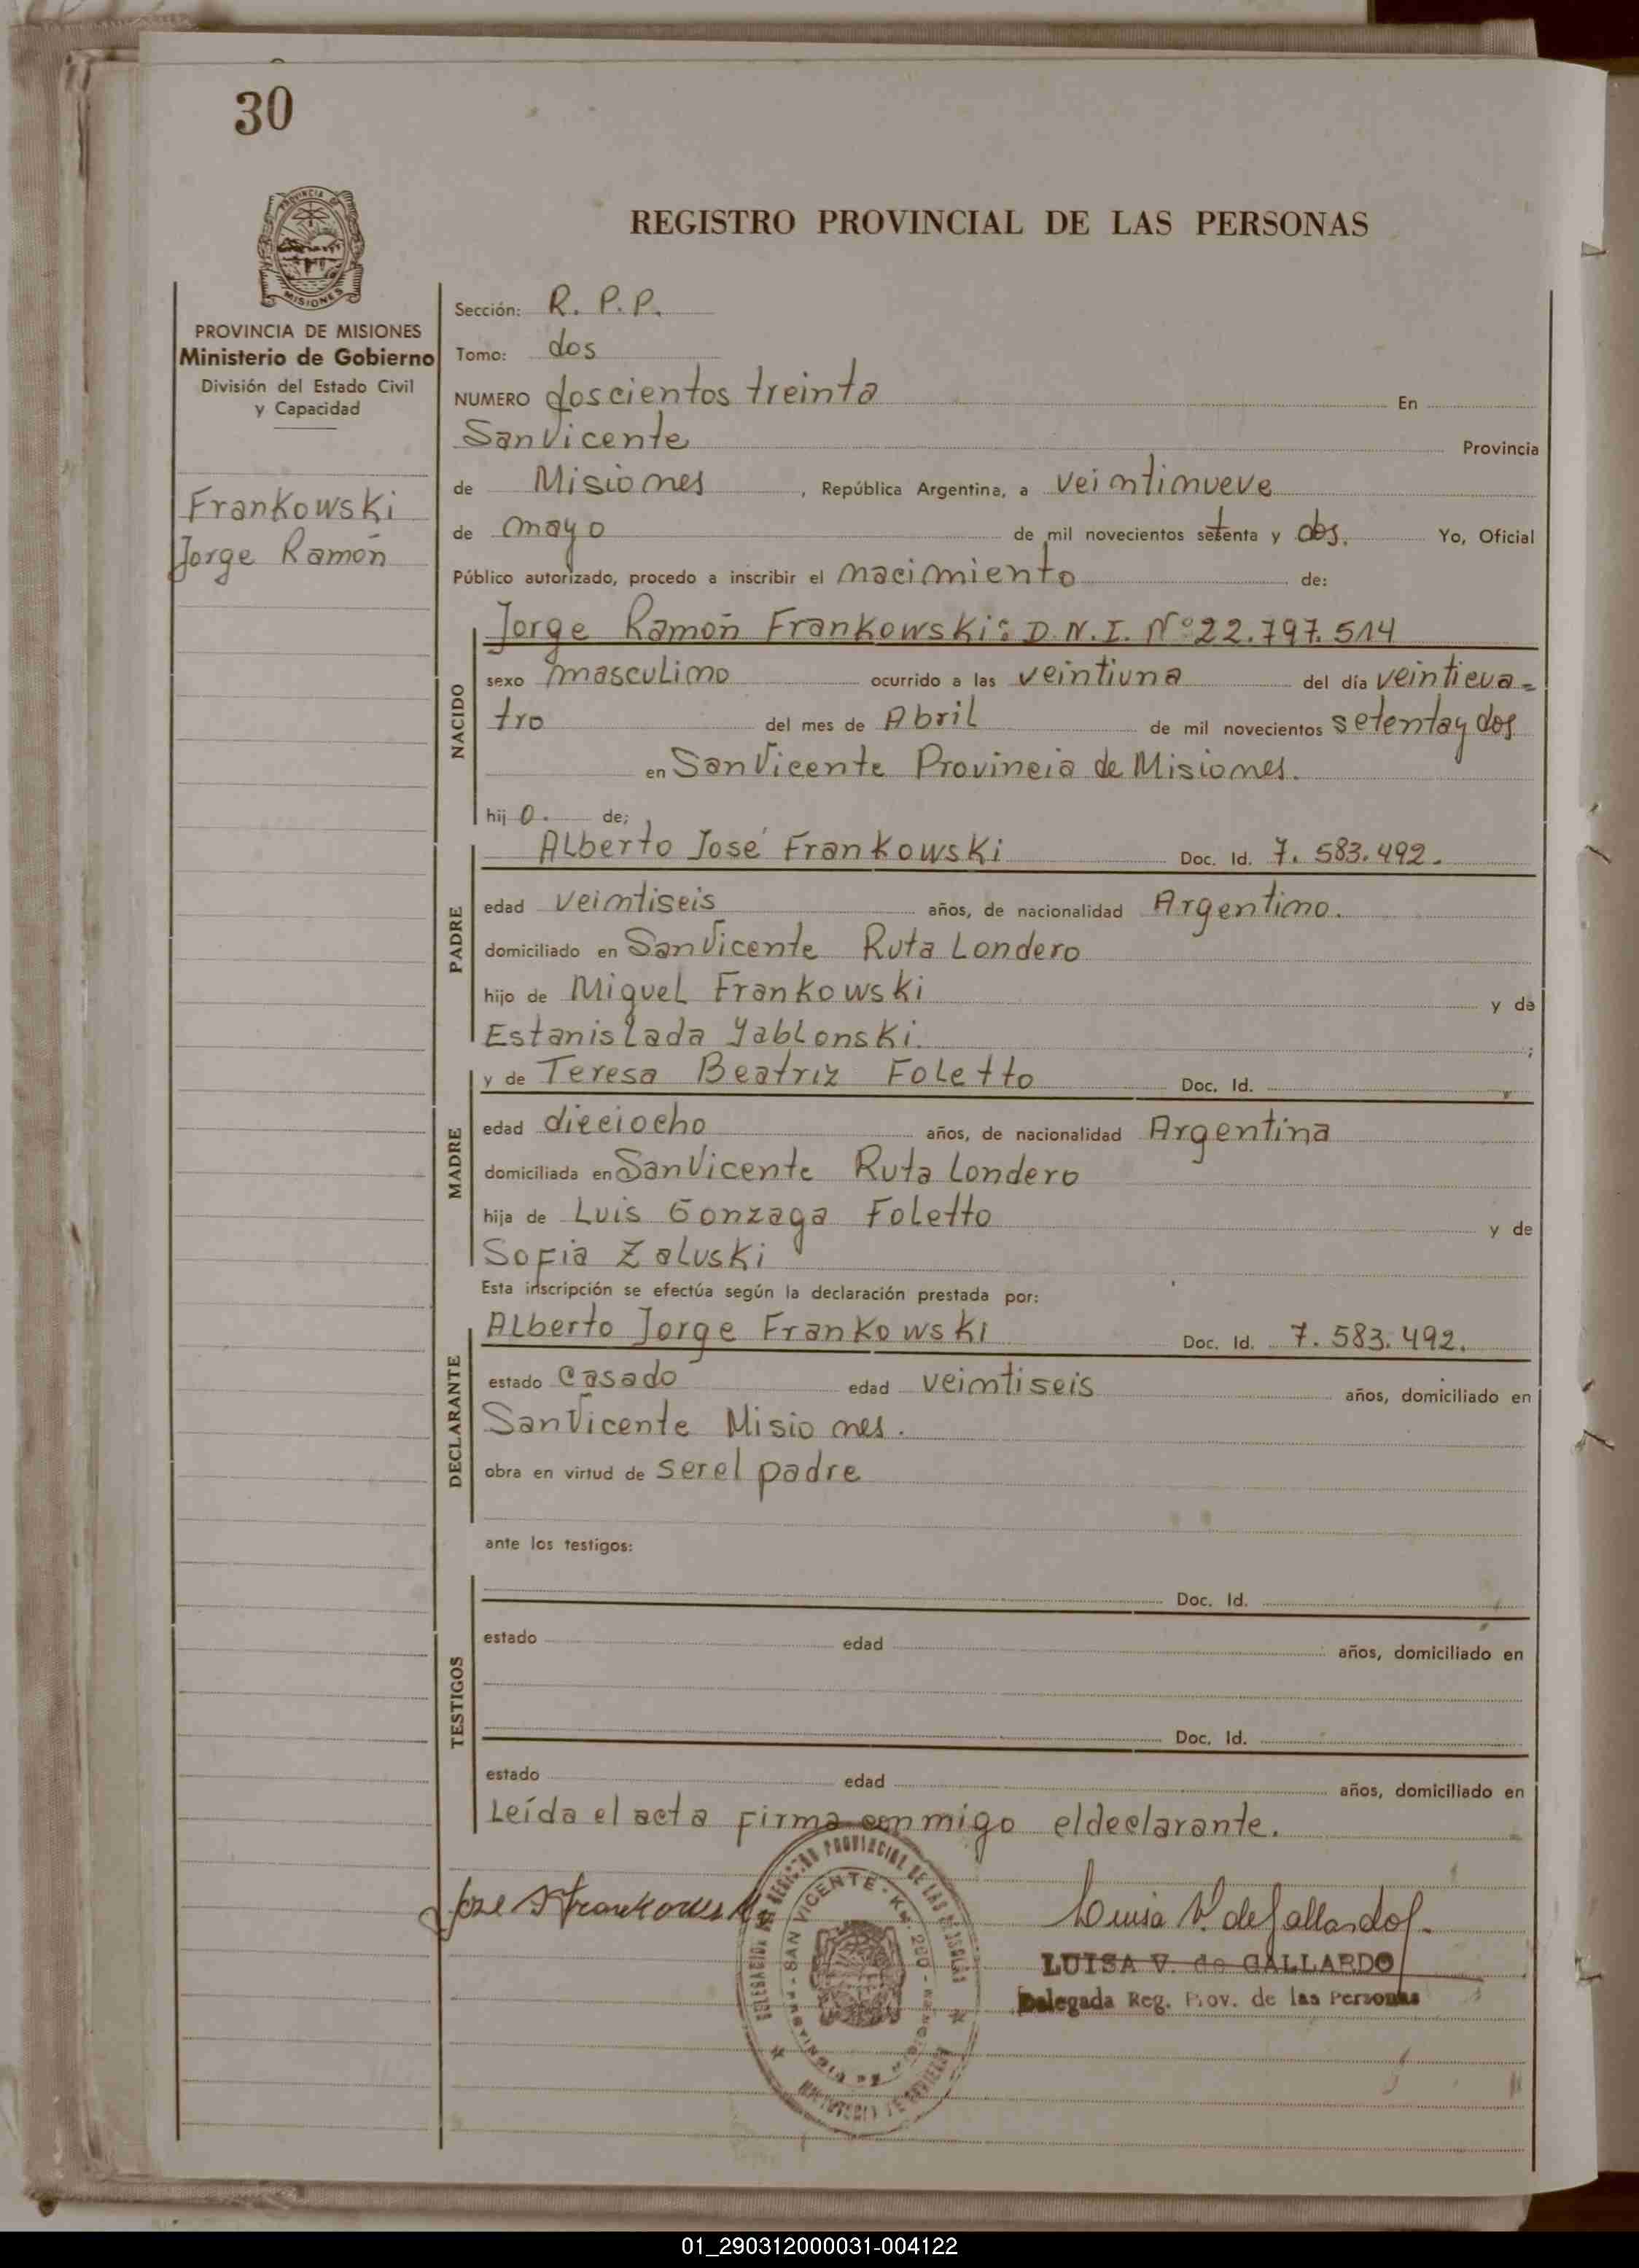 30
PROVINCIA DE MISIONES
Ministerio de Gobierno
División del Estado Civil
y Capacidad
Frankowski
Jorge Ramón
REGISTRO PROVINCIAL DE LAS PERSONAS
Sección: R. P. P.
Tomo: dos
NUMERO doscientos treinta En
San Vicente Provincia
de Misiones, República Argentina, a veintinueve
de mayo de mil novecientos setenta y dos. Yo, Oficial
Público autorizado, procedo a inscribir el nacimiento de:
NACIDO
Jorge Ramón Frankowski: D.N.I. Nº 22.797.514
sexo masculino ocurrido a las veintiuna del día veinticua=
tro del mes de Abril de mil novecientos setenta y dos
en San Vicente Provincia de Misiones.
hijo. de;
PADRE
Alberto José Frankowski Doc. Id. 7.583.492.
edad veintiseis años, de nacionalidad Argentino.
domiciliado en San Vicente Ruta Londero
hijo de Miguel Frankowski y de
Estanislada Yablonski. ;
MADRE
y de Teresa Beatriz Foletto Doc. Id.
edad dieciocho años, de nacionalidad Argentina
domiciliada en San Vicente Ruta Londero
hija de Luis Gonzaga Foletto y de
Sofia Zaluski
Esta inscripción se efectúa según la declaración prestada por:
DECLARANTE
Alberto Jorge Frankowski Doc. Id. 7.583.492.
estado casado edad veintiseis años, domiciliado en
San Vicente Misiones.
obra en virtud de ser el padre
ante los testigos:
TESTIGOS
Doc. Id.
estado edad años, domiciliado en
Doc. Id.
estado edad años, domiciliado en
Leída el acta firma conmigo el declarante.
Luisa V. de Gallardo
LUISA V. de GALLARDO
Delegada Reg. Prov. de las Personas
REGISTRO PROVINCIAL DE LAS
SAN VICENTE
01_290312000031-004122